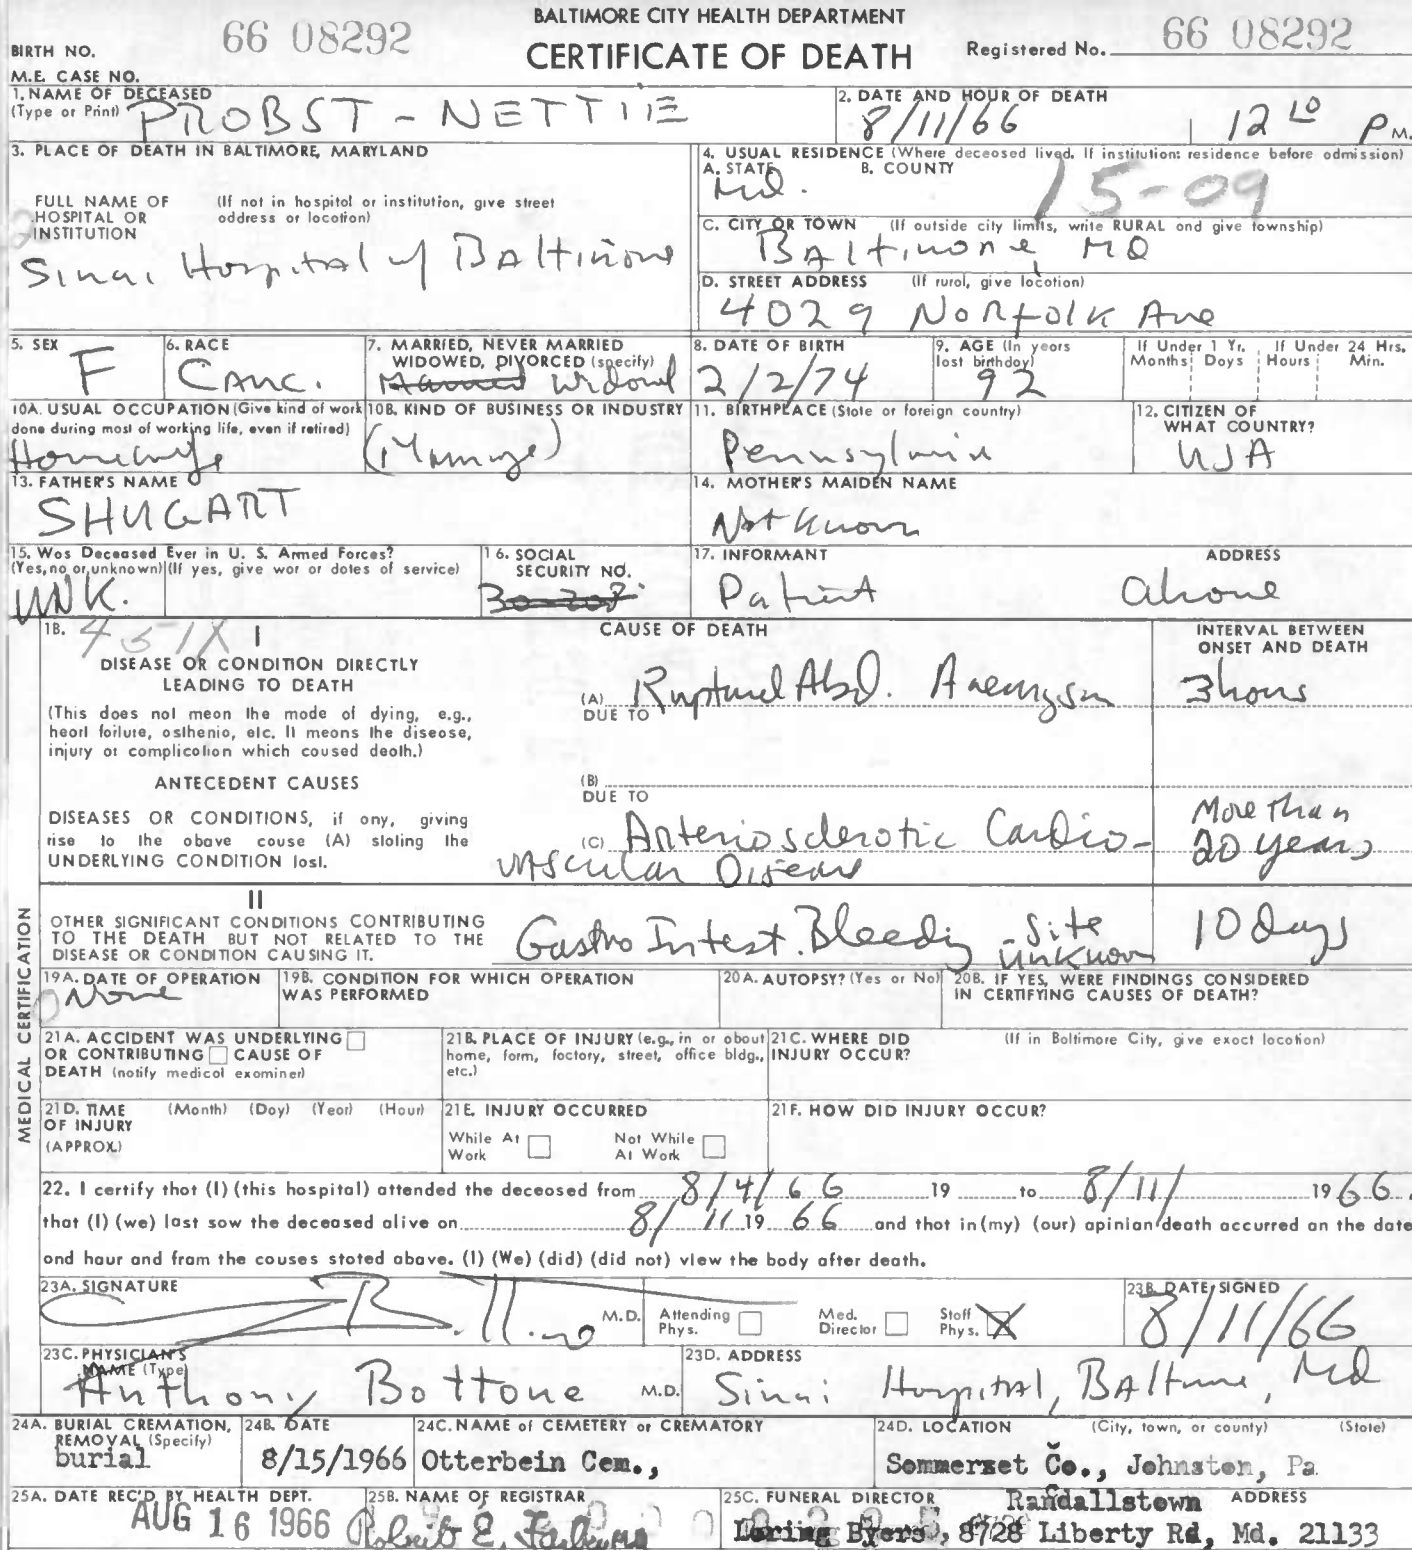 BALTIMORE CITY HEALTH DEPARTMENT
BIRTH NO. 66 08292 CERTIFICATE OF DEATH Registered No. 66 08292
M.E. CASE NO.
1. NAME OF DECEASED
(Type or Print) PROBST - NETTIE
2. DATE AND HOUR OF DEATH
8/11/66 12 10 P M.
3. PLACE OF DEATH IN BALTIMORE, MARYLAND
FULL NAME OF HOSPITAL OR INSTITUTION
(If not in hospital or institution, give street address or location)
Sinai Hospital of Baltimore
4. USUAL RESIDENCE (Where deceased lived. If institution: residence before admission)
A. STATE B. COUNTY
Md. 15-09
C. CITY OR TOWN (If outside city limits, write RURAL and give township)
Baltimore, MD
D. STREET ADDRESS (If rural, give location)
4029 Norfolk Ave
5. SEX
F
6. RACE
Cauc.
7. MARRIED, NEVER MARRIED
WIDOWED, DIVORCED (specify)
Married Widowed
8. DATE OF BIRTH
2/2/74
9. AGE (In years
last birthday)
92
If Under 1 Yr. If Under 24 Hrs.
Months Days Hours Min.
10A. USUAL OCCUPATION (Give kind of work
done during most of working life, even if retired)
Housewife
10B. KIND OF BUSINESS OR INDUSTRY
11. BIRTHPLACE (State or foreign country)
Pennsylvania
12. CITIZEN OF
WHAT COUNTRY?
USA
13. FATHER'S NAME
SHUGART
14. MOTHER'S MAIDEN NAME
Not Known
15. Was Deceased Ever in U. S. Armed Forces?
(Yes, no or unknown) (If yes, give war or dates of service)
UNK.
16. SOCIAL
SECURITY NO.
17. INFORMANT ADDRESS
Patient above
18. I
DISEASE OR CONDITION DIRECTLY
LEADING TO DEATH
(This does not mean the mode of dying, e.g.,
heart failure, asthenia, etc. It means the disease,
injury or complication which caused death.)
ANTECEDENT CAUSES
DISEASES OR CONDITIONS, if any, giving
rise to the above cause (A) stating the
UNDERLYING CONDITION last.
CAUSE OF DEATH
(A) Ruptured Abd. Aneurysm
DUE TO
(B)
DUE TO
(C) Arteriosclerotic Cardio-
vascular Disease
INTERVAL BETWEEN
ONSET AND DEATH
3 hours
More than
20 years
II
OTHER SIGNIFICANT CONDITIONS CONTRIBUTING
TO THE DEATH BUT NOT RELATED TO THE
DISEASE OR CONDITION CAUSING IT.
Gastro Intest. Bleeding - Site unknown
10 days
MEDICAL CERTIFICATION
19A. DATE OF OPERATION
None
19B. CONDITION FOR WHICH OPERATION
WAS PERFORMED
20A. AUTOPSY? (Yes or No)
20B. IF YES, WERE FINDINGS CONSIDERED
IN CERTIFYING CAUSES OF DEATH?
21A. ACCIDENT WAS UNDERLYING
OR CONTRIBUTING CAUSE OF
DEATH (notify medical examiner)
21B. PLACE OF INJURY (e.g., in or about
home, farm, factory, street, office bldg.,
etc.)
21C. WHERE DID
INJURY OCCUR?
(If in Baltimore City, give exact location)
21D. TIME (Month) (Day) (Year) (Hour)
OF INJURY
(APPROX.)
21E. INJURY OCCURRED
While At Work Not While At Work
21F. HOW DID INJURY OCCUR?
22. I certify that (I) (this hospital) attended the deceased from 8/4/66 19 to 8/11/ 1966,
that (I) (we) last saw the deceased alive on 8/11 19 66 and that in (my) (our) opinion death occurred on the date
and hour and from the causes stated above. (I) (We) (did) (did not) view the body after death.
23A. SIGNATURE
M.D. Attending Phys. Med. Director Staff Phys. X
23B. DATE SIGNED
8/11/66
23C. PHYSICIAN'S
NAME (Type)
Anthony Bottone M.D.
23D. ADDRESS
Sinai Hospital, Baltimore, Md
24A. BURIAL CREMATION,
REMOVAL (Specify)
burial
24B. DATE
8/15/1966
24C. NAME of CEMETERY or CREMATORY
Otterbein Cem.,
24D. LOCATION (City, town, or county) (State)
Sommerset Co., Johnston, Pa
25A. DATE REC'D BY HEALTH DEPT.
AUG 16 1966
25B. NAME OF REGISTRAR
Robert E. Farber
25C. FUNERAL DIRECTOR ADDRESS
Randallstown
Loring Byers, 8728 Liberty Rd, Md. 21133